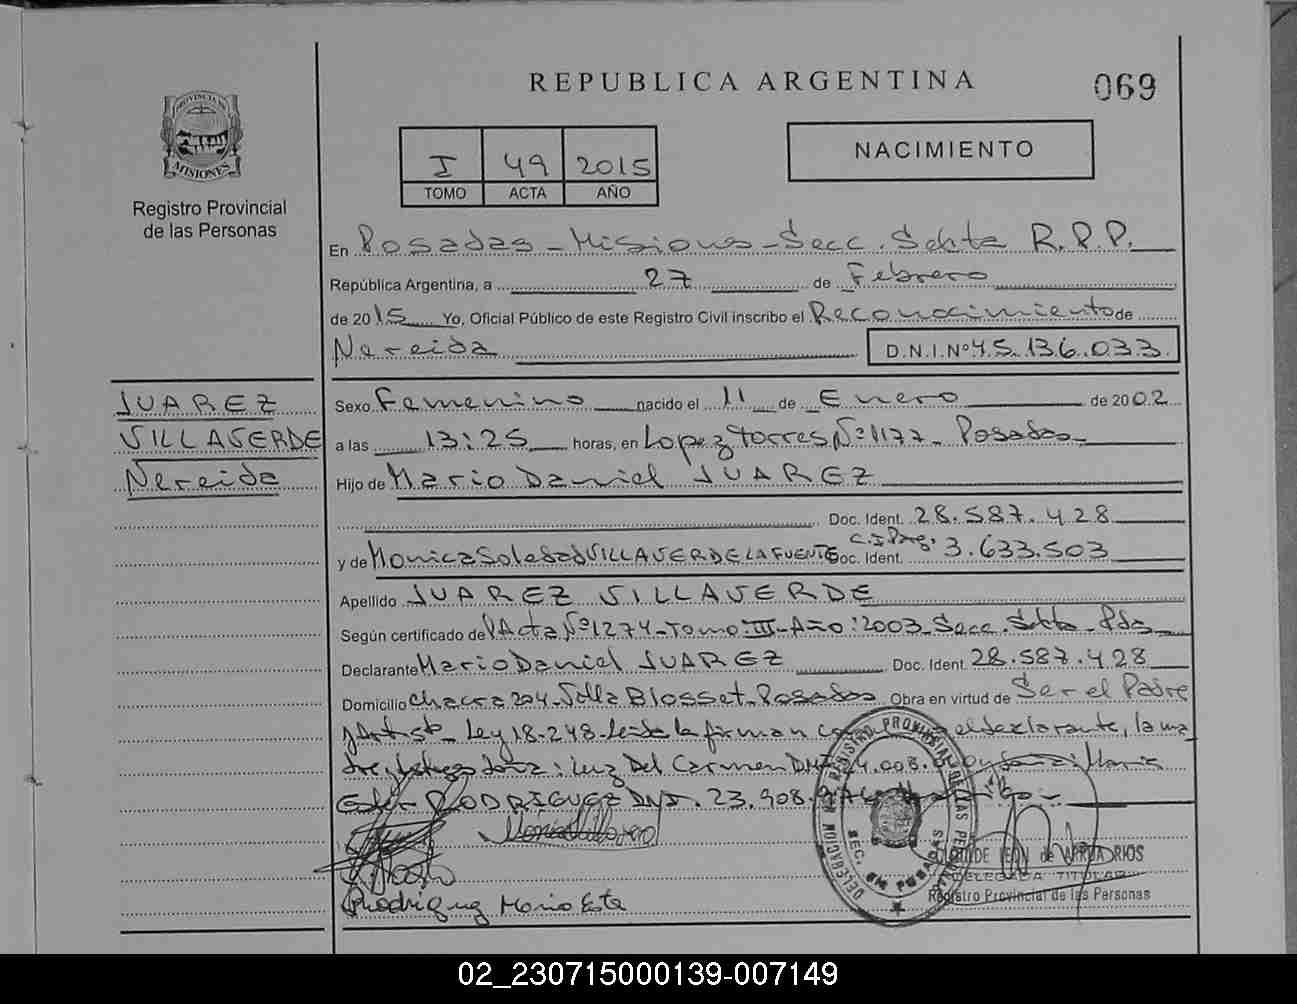 REPUBLICA ARGENTINA
069
PROVINCIA DE
MISIONES
Registro Provincial
de las Personas
I 49 2015
TOMO ACTA AÑO
NACIMIENTO
En Posadas - Misiones - Secc. Sexta R.P.P.
República Argentina, a 27 de Febrero
de 2015 Yo, Oficial Público de este Registro Civil inscribo el Reconocimiento de
Nereida D.N.I.Nº 45.136.033
JUAREZ
VILLAVERDE
Nereida
Sexo Femenino nacido el 11 de Enero de 2002
a las 13:25 horas, en Lopez Torres Nº 1177 - Posadas -
Hijo de Mario Daniel JUAREZ
Doc. Ident. 28.587.428
y de Monica Soledad VILLAVERDE LA FUENTE Doc. Ident. C.I. Parg. 3.633.503
Apellido JUAREZ VILLAVERDE
Según certificado de Acta Nº 1274 - Tomo: III - Año: 2003 - Secc. Sexta - Pdas
Declarante Mario Daniel JUAREZ Doc. Ident. 28.587.428
Domicilio Chacra 204 - Villa Blosset - Posadas Obra en virtud de Ser el Padre
Ley 18.248 - Leida la firman el declarante, la ma
dre, Luz Del Carmen DNI María
RODRIGUEZ DNI. 23.908.
Rodriguez Maria Este
DELEGACION REGISTRO PROVINCIAL DE LAS PERSONAS
SEC. 6ta POSADAS
LEON de ARRUA RIOS
DELEGADA TITULAR
Registro Provincial de las Personas
02_230715000139-007149